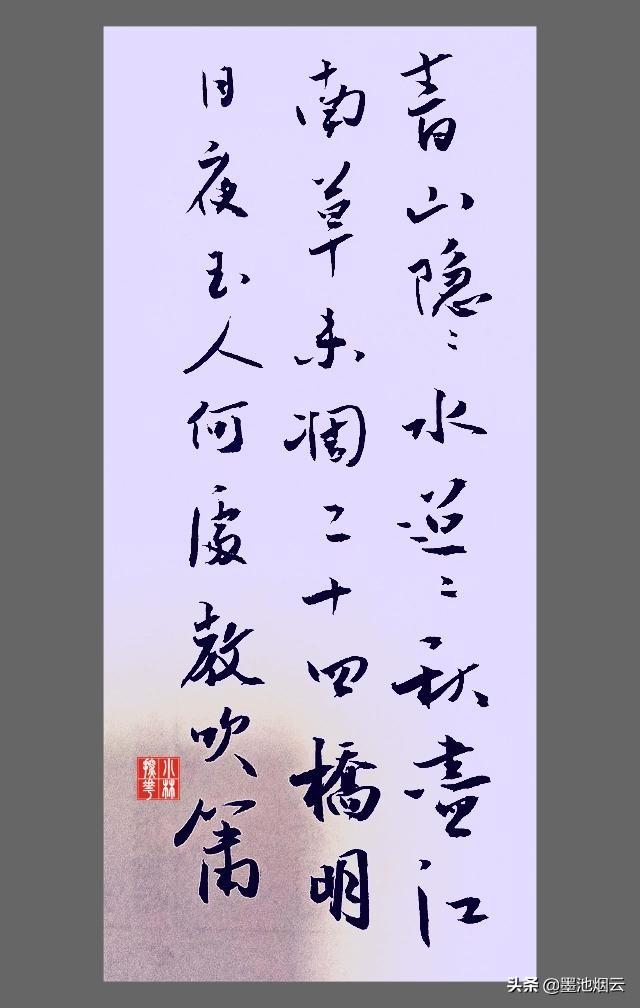 青山隐〻水迢〻秋盡江
南草未凋二十四橋明
月夜玉人何處教吹箫
小林
头条 @墨池烟云